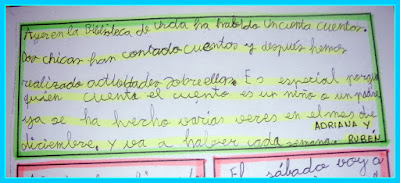 Ayer en la Biblioteca de Urda ha habido un cuenta cuentos.
Dos chicas han contado cuentos y después hemos
realizado actividades sobre ellos. Es especial porque
quien cuenta el cuento es un niño o un padre
ya se ha hecho varias veces en el mes de
ADRIANA Y
diciembre, y va a haber cada semana. RUBÉN
El sábado voy a